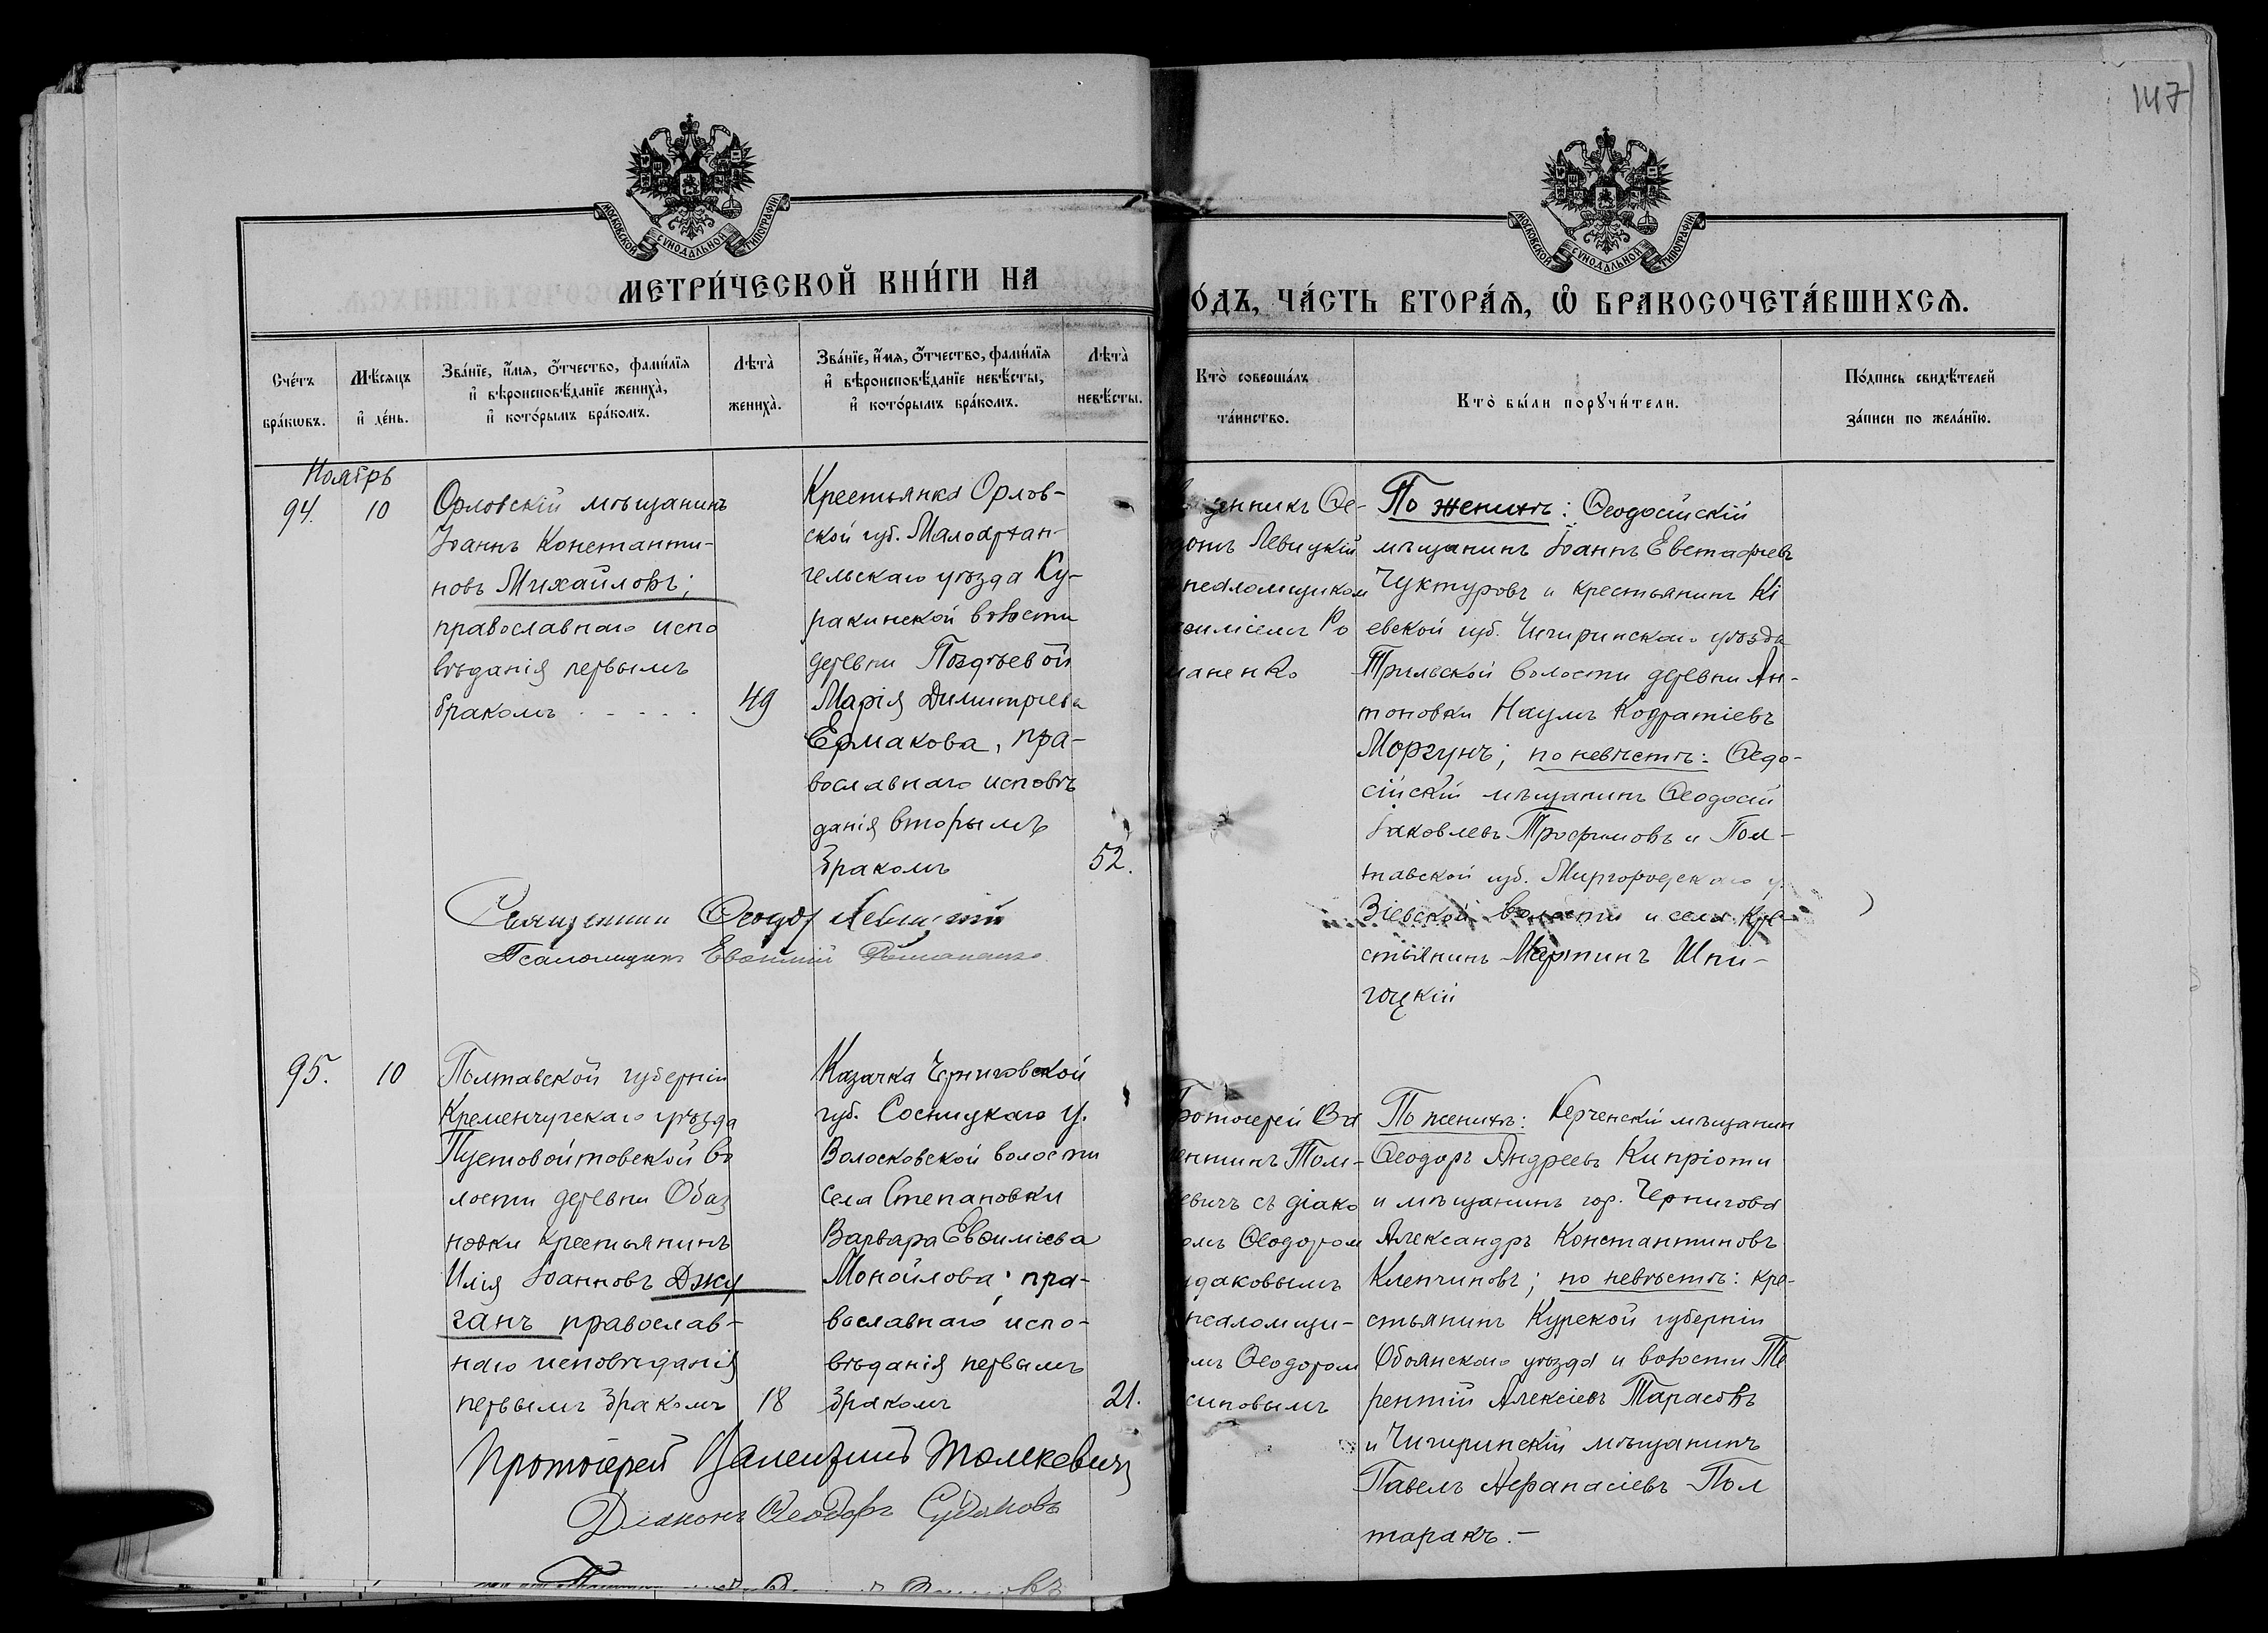 147
МОСКОВСКОЙ СУНОДАЛЬНОЙ ТИПОГРАФІИ
МОСКОВСКОЙ СУНОДАЛЬНОЙ ТИПОГРАФІИ
МЕТРИ́ЧЕСКОЙ КНИ́ГИ НА
ОДЪ, ЧА́СТЬ ВТОРА́Ѧ, Ѡ҆ БРАКОСОЧЕТА́ВШИХСѦ.
Сче́тъ
бра́кѡвъ.
Мѣ́сяцъ
и҆ де́нь.
Зва́нїе, и҆́мя, о҆́тчество, фами́лїя
и҆ вѣроисповѣ́данїе жениха̀,
и҆ кото́рымъ бра́комъ.
Лѣта̀
жениха̀.
Зва́нїе, и҆́мя, о҆́тчество, фами́лїя
и҆ вѣроисповѣ́данїе невѣ́сты,
и҆ кото́рымъ бра́комъ.
Лѣта̀
невѣ́сты.
Кто̀ соверша́лъ
та́инство.
Кто̀ бы́ли порꙋчи́тели.
По́дпись свидѣ́телей
за́писи по жела́нїю.
Ноябрь
94.
10
Орловскій мѣщанинъ
Іоаннъ Константи-
новъ Михайловъ;
православнаго испо
вѣданія первымъ
бракомъ - - - - -
49
Крестьянка Орлов-
ской губ. Малоархан-
гельскаго уѣзда Ку-
ракинской волости
деревни Поздѣевой
Марія Димитріева
Ермакова, пра-
вославнаго исповѣ
данія вторымъ
бракомъ
52.
щенникъ Ѳе-
дотъ Левицкій
псаломщиком
ѳиміемъ Ро
маненко
По женихѣ: Ѳеодосійскій
мѣщанинъ Іоаннъ Евстафіевъ
Чуктуровъ и крестьянинъ Кі
евской губ. Чигиринскаго уѣзда
Трильской волости деревни Ан-
тоновки Наумъ Кодратіевъ
Моргунъ; по невѣстѣ: Ѳедо-
сійскій мѣщанинъ Ѳеодосій
Іаковлевъ Трофимовъ и Пол-
тавской губ. Миргородскаго у.
Зіевской волости и села Кре-
стьянинъ Мартинъ Шпи-
гоцкій
Священник Левицкій
Псаломщикъ Евѳимій Романенко
95.
10
Полтавской губерніи
Кременчугскаго уѣзда
Пустовойтовской во
лости деревни Обаз
новки крестьянинъ
Илія Іоанновъ Джу
ганъ православ-
наго исповѣданія
первымъ бракомъ
18
Казачка Черниговской
губ. Сосницкаго у.
Волосковской волости
села Степановки
Варвара Евѳиміева
Монойлова; пра-
вославнаго испо-
вѣданія первымъ
бракомъ
21.
Протоіерей Ва
ентинъ Том-
евичъ съ діако
омъ Ѳеодором
удаковымъ
псаломщи-
омъ Ѳеодором
сиповымъ
По женихѣ: Керченскій мѣщанин
Ѳеодоръ Андреевъ Кипріоти
и мѣщанинъ гор. Чернигова
Александръ Константиновъ
Клепчиновъ; по невѣстѣ: кре-
стьянинъ Курской губерніи
Обоянскаго уѣзда и волости Те
рентій Алексіевъ Тарасовъ
и Чигиринскій мѣщанинъ
Павелъ Аѳанасіевъ Пол
таракъ.-
Протоіерей Валентинъ Томкевичъ
Діаконъ Ѳеодоръ Судаковъ